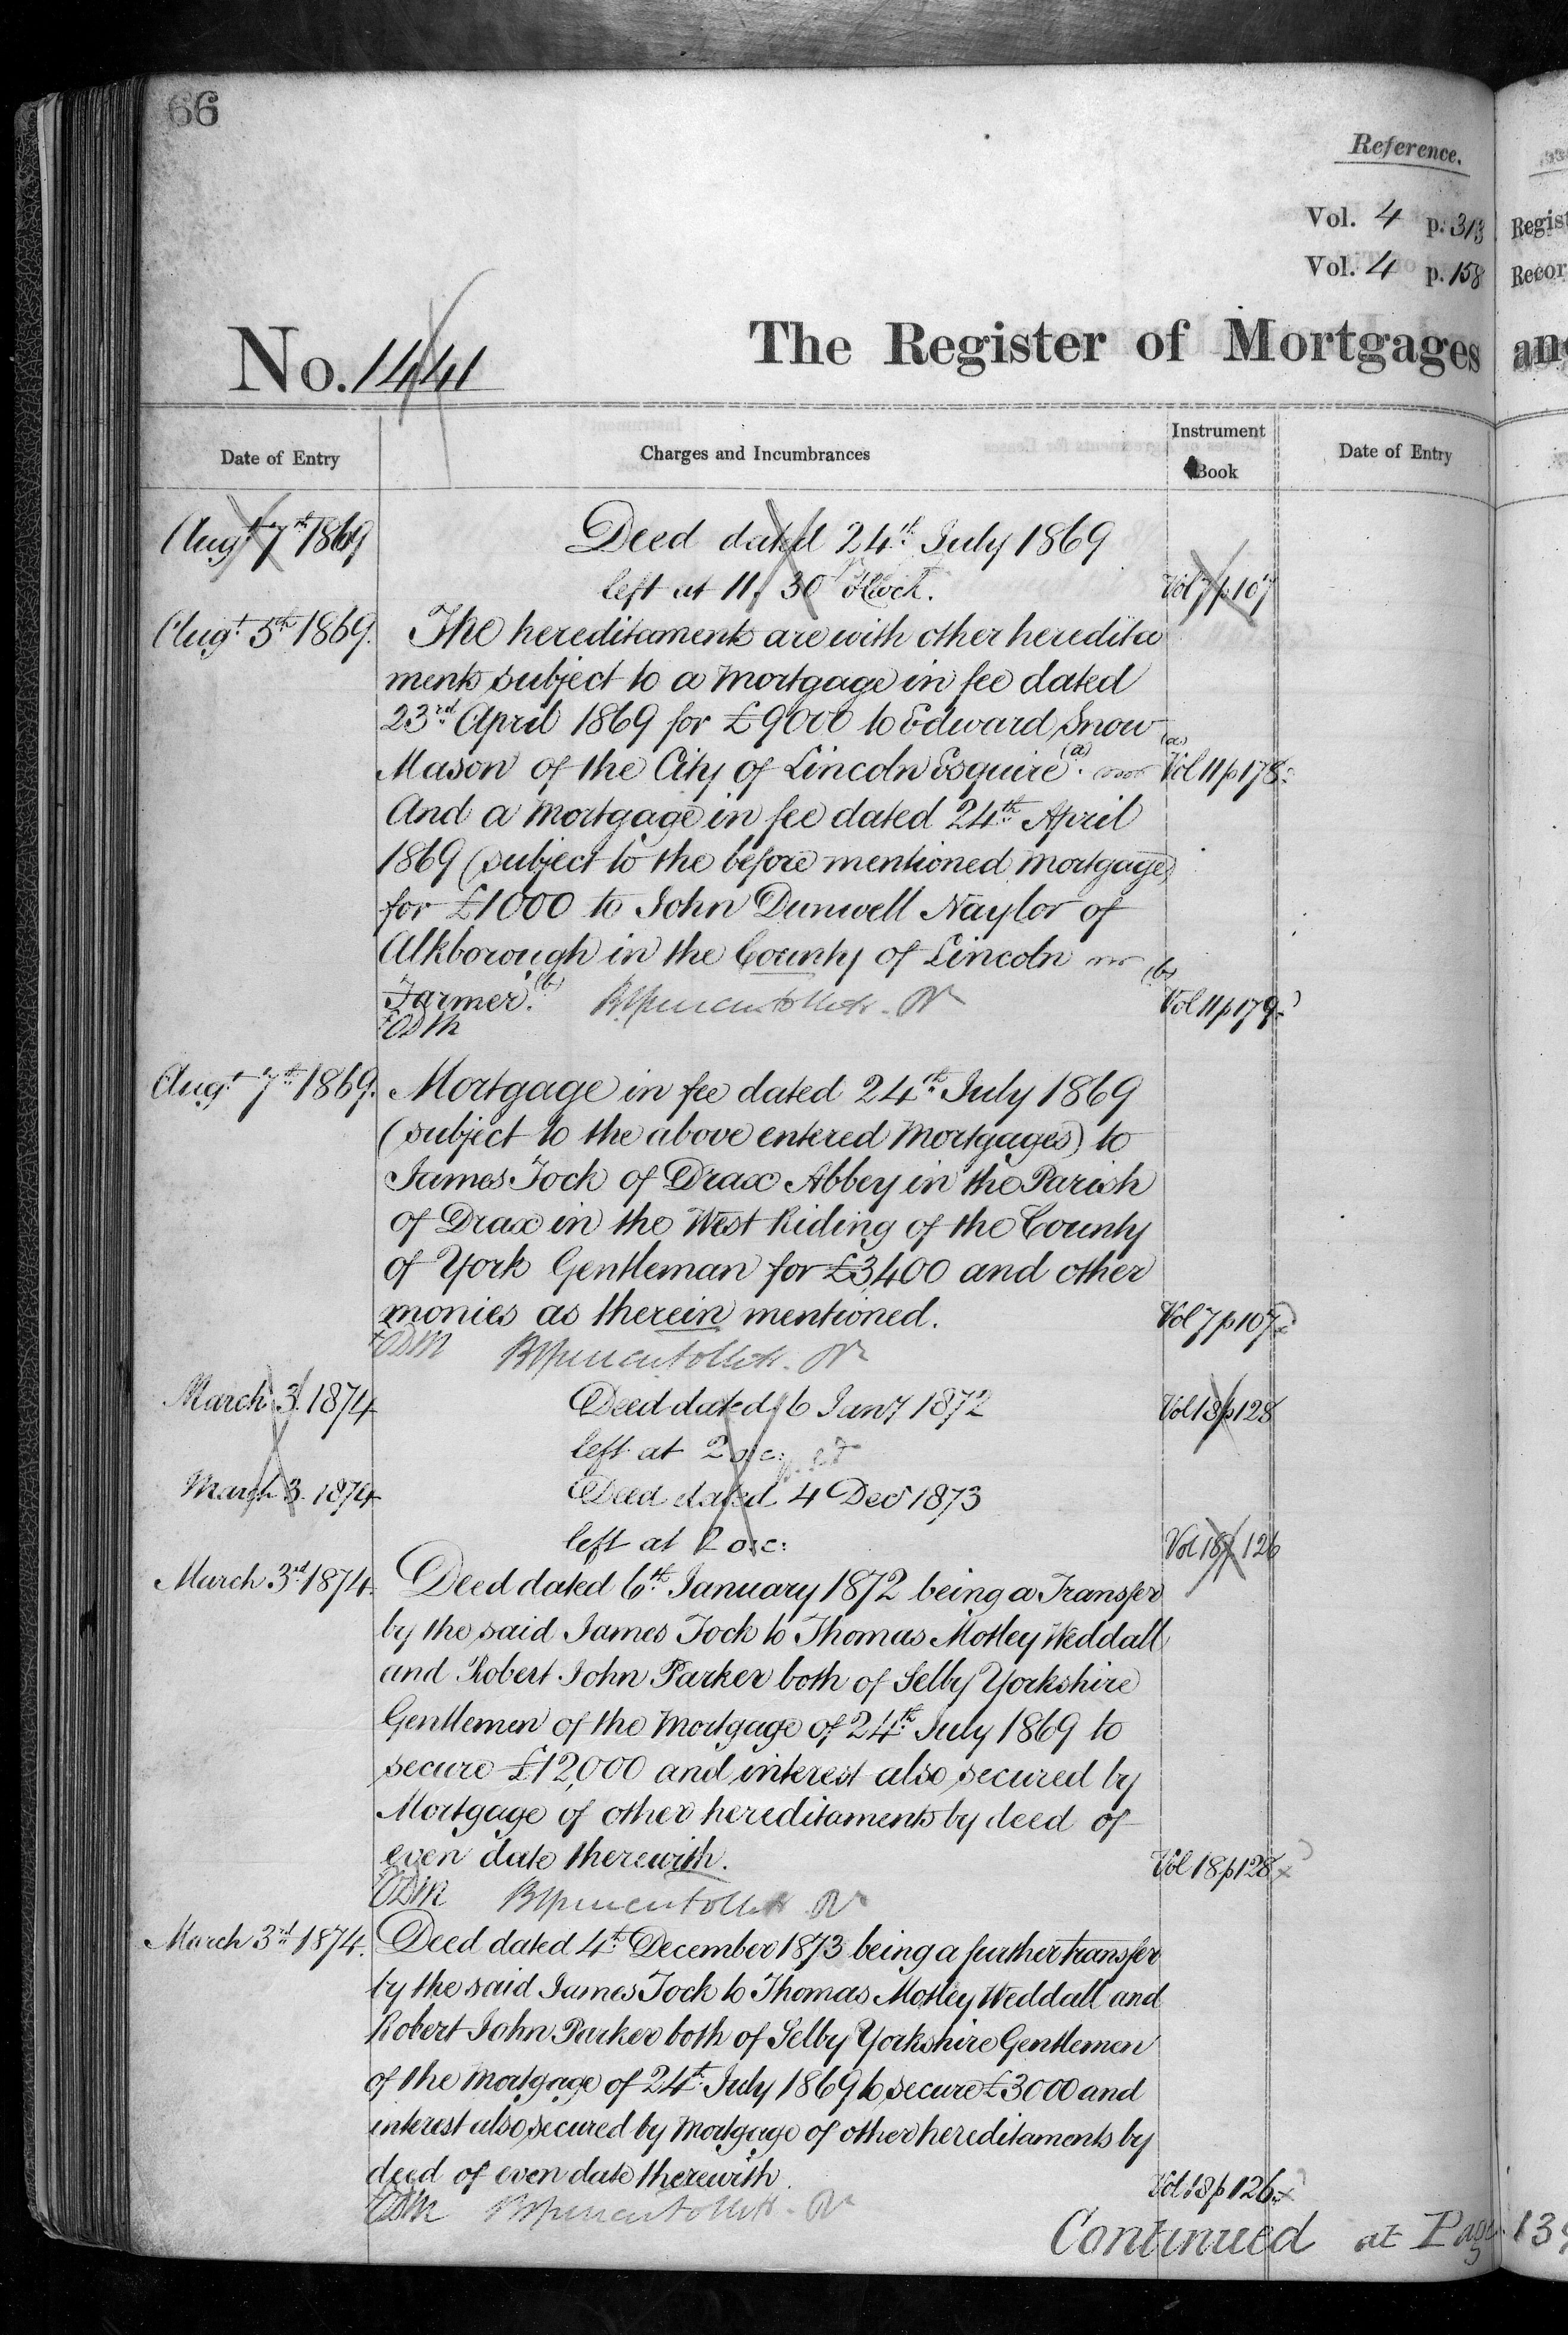 66
Reference.
Vol. 4 p. 313
Vol. 4 p. 158
No. 1441
The Register of Mortgages
Date of Entry
Charges and Incumbrances
Instrument Book
Date of Entry
Augt 7th 1869
Deed dated 24th July 1869
left at 11. 30 oClock.
Vol 7 p 107
Augt 5th 1869.
The hereditaments are with other heredita
ments subject to a Mortgage in fee dated
23rd April 1869 for £9000 to Edward Snow
Mason of the City of Lincoln Esquire (a).
(a) Vol 11 p 178
And a Mortgage in fee dated 24th April
1869 (subject to the before mentioned Mortgage)
for £1000 to John Dunwell Naylor of
Alkborough in the County of Lincoln
Farmer. (b)
(b) Vol 11 p 179
Augt 7th 1869.
Mortgage in fee dated 24th July 1869
(subject to the above entered Mortgages) to
James Tock of Drax Abbey in the Parish
of Drax in the West Riding of the County
of York Gentleman for £3,400 and other
monies as therein mentioned.
Vol 7 p 107
March 3. 1874
Deed dated 6 Jany 1872
Vol 18 p 128
left at 2 o.c:
March 3. 1874
Deed dated 4 Decr 1873
left at 2 o.c:
Vol 18 p 126
March 3rd 1874.
Deed dated 6th January 1872 being a Transfer
by the said James Tock to Thomas Motley Weddall
and Robert John Parker both of Selby Yorkshire
Gentlemen of the Mortgage of 24th July 1869 to
secure £12,000 and interest also secured by
Mortgage of other hereditaments by deed of
even date therewith.
Vol 18 p 128
March 3rd 1874.
Deed dated 4th December 1873 being a further transfer
by the said James Tock to Thomas Motley Weddall and
Robert John Parker both of Selby Yorkshire Gentlemen
of the Mortgage of 24th July 1869 to secure £3000 and
interest also secured by Mortgage of other hereditaments by
deed of even date therewith.
Vol 18 p 126
Continued at Page